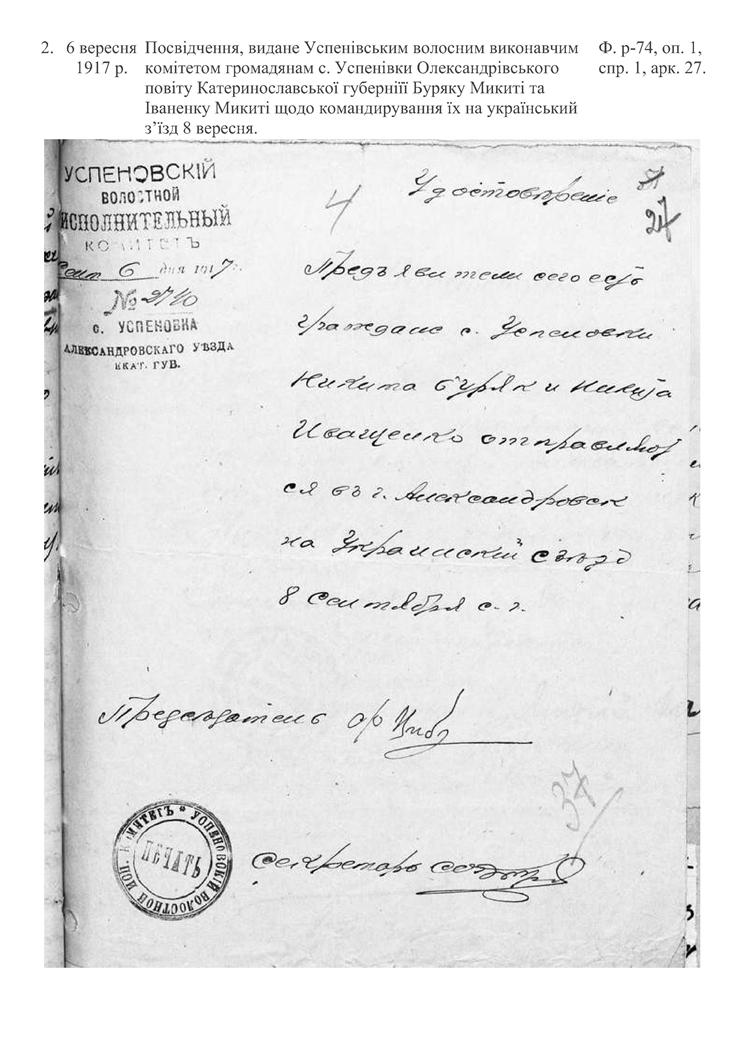 2. 6 вересня 1917 р.
Посвідчення, видане Успенівським волосним виконавчим
комітетом громадянам с. Успенівки Олександрівського
повіту Катеринославської губерніїї Буряку Микиті та
Іваненку Микиті щодо командирування їх на український
з’їзд 8 вересня.
Ф. р-74, оп. 1,
спр. 1, арк. 27.
УСПЕНОВСКІЙ
ВОЛОСТНОЙ
ИСПОЛНИТЕЛЬНЫЙ
КОМИТЕТЪ
Сент 6 дня 1917 г.
№ 2740
с. УСПЕНОВКА
АЛЕКСАНДРОВСКАГО УѢЗДА
ЕКАТ. ГУВ.
4
27
Удостовѣреніе
Предъявители сего есть
граждане с. Успеновки
Никита Буряк и Никита
Иващенко отправляют
ся въ г. Александровск
на Украинскій съѣзд
8 Сентября с. г.
Предсѣдатель
37
Секретарь
УСПЕНОВСКІЙ ВОЛОСТНОЙ ИСП. КОМИТЕТЪ *
ПЕЧАТЬ